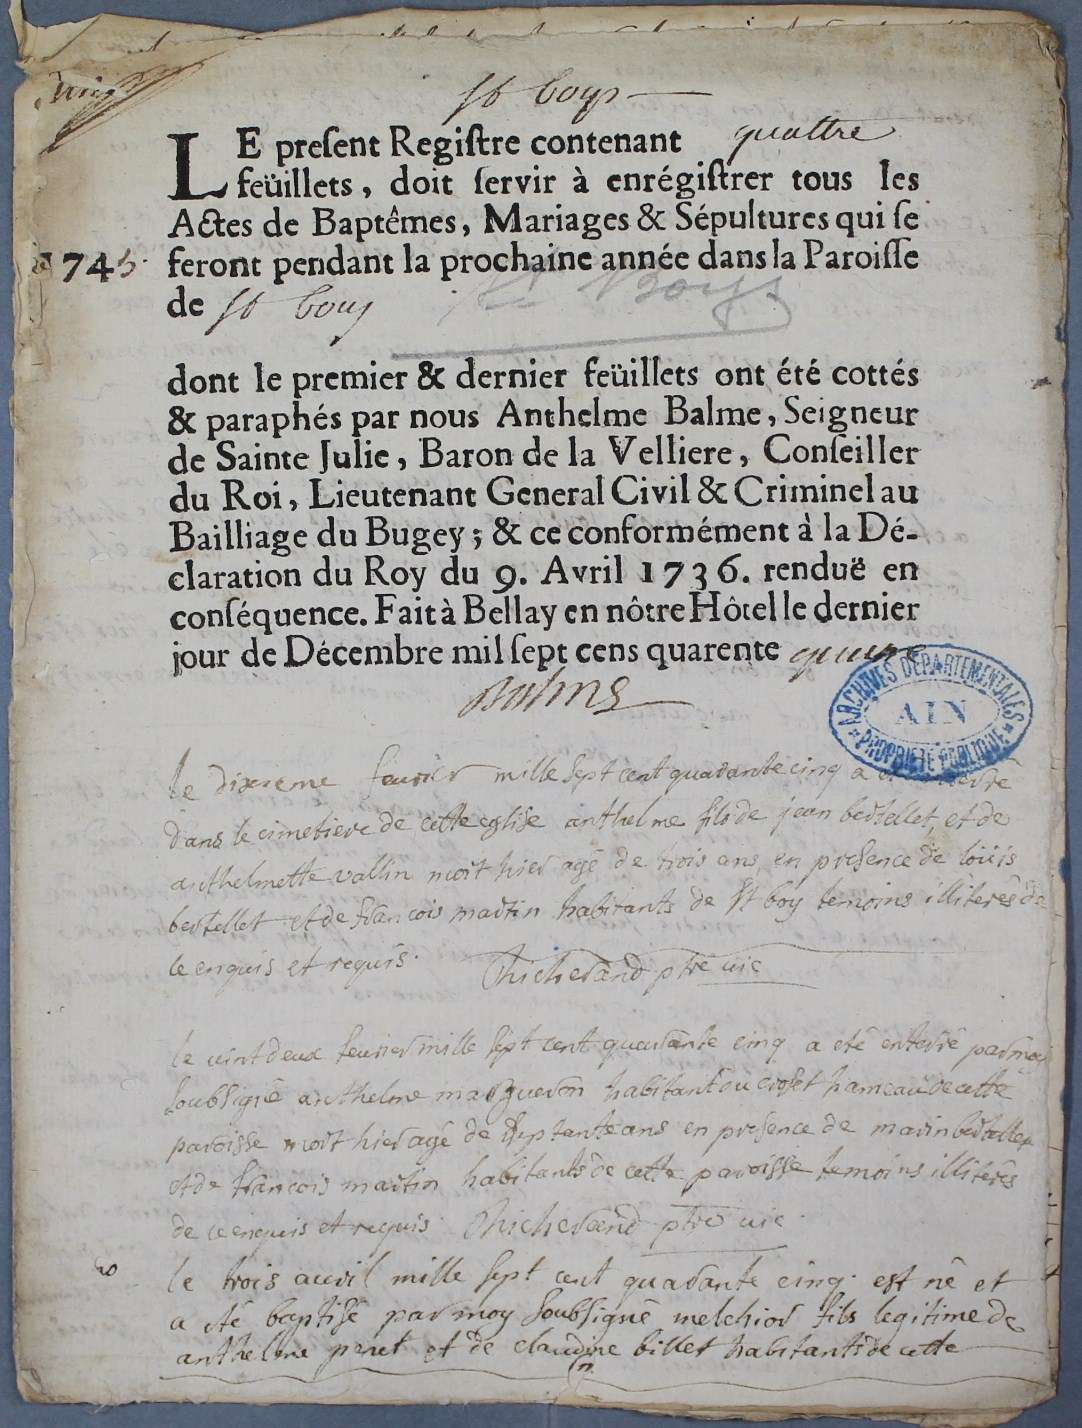 St boys
LE preſent Regiſtre contenant quattre
feüillets, doit ſervir à enrégiſtrer tous les
Actes de Baptêmes, Mariages & Sépultures qui ſe
1745. feront pendant la prochaine année dans la Paroiſſe
de St boys St Boys
dont le premier & dernier feüillets ont été cottés
& paraphés par nous Anthelme Balme, Seigneur
de Sainte Julie, Baron de la Velliere, Conſeiller
du Roi, Lieutenant General Civil & Criminel au
Bailliage du Bugey ; & ce conformément à la Dé-
claration du Roy du 9. Avril 1736. renduë en
conſéquence. Fait à Bellay en nôtre Hôtel le dernier
jour de Décembre mil ſept cens quarente
Balme
ARCHIVES DEPARTEMENTALES
AIN
PROPRIETE PUBLIQUE
le dixieme feurier mille sept cent quarante cinq a
dans le cimetiere de cette eglise anthelme fils de jean bertellet, et de
anthelmette vallin mort hier agé de trois ans, en presence de loüis
bertellet et de francois martin habitants de St boy temoins illiterés de
ce enquis et requis. Richerand ptre vic
le vint deux feurier mille sept cent quarante cinq a eté enterré par moi
soubsigné anthelme habitant du croset hameau de cette
paroisse mort hier agé de septante ans en presence de marin bertellet
et de francois martin habitants de cette paroisse temoins illiterés
de ce enquis et requis. Richerand ptre vic.
le trois auril mille sept cent quarante cinq. est né et
a eté baptisé par moy soubsigné melchior fils legitime de
anthelme peret et de claudine billet habitants de cette